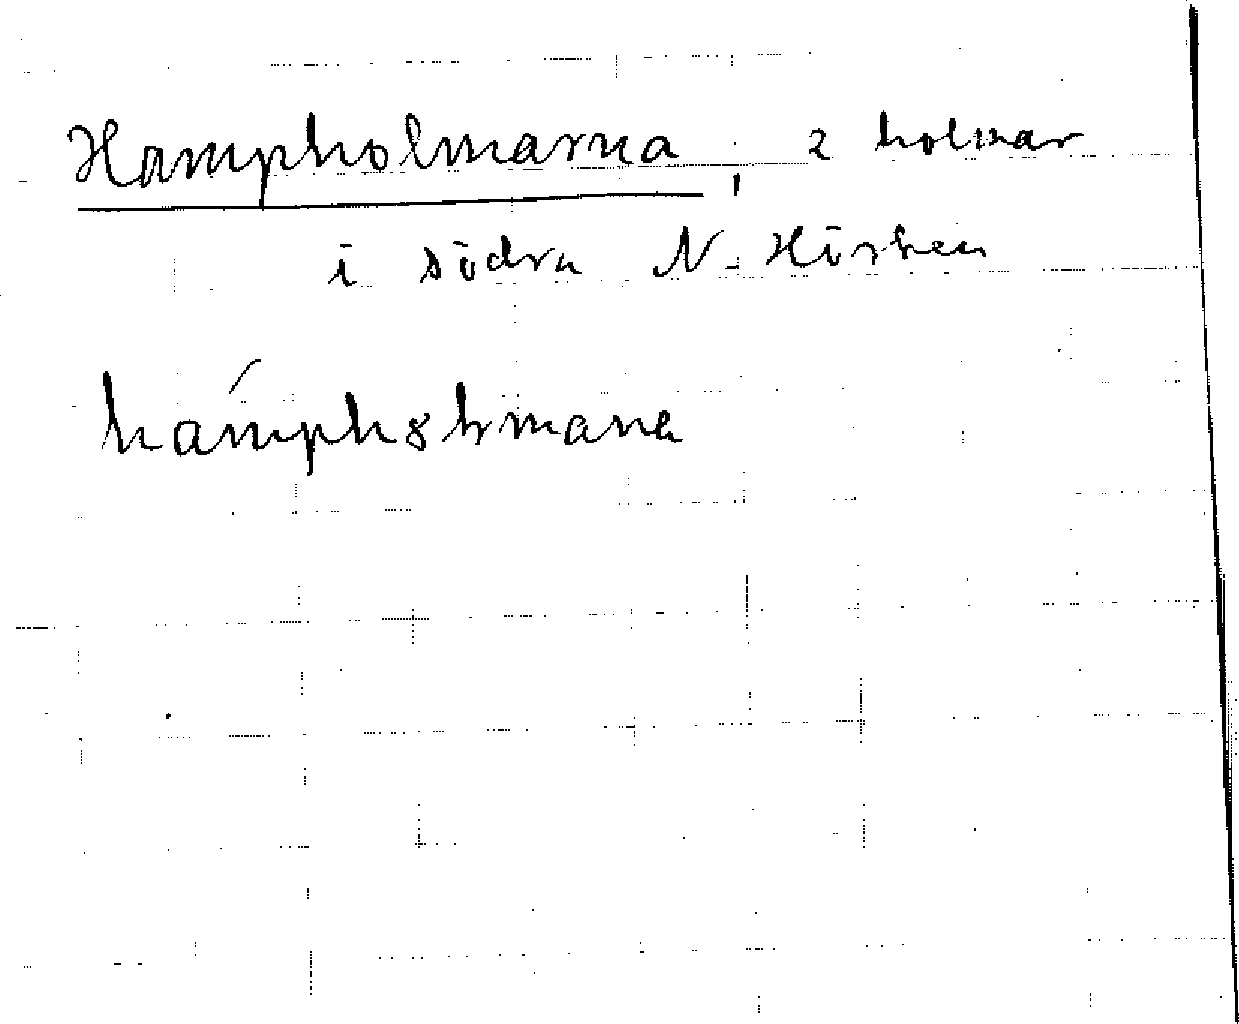 Hampholmarna, 2 holmar
i södra N. Hörken
hámph8lmana